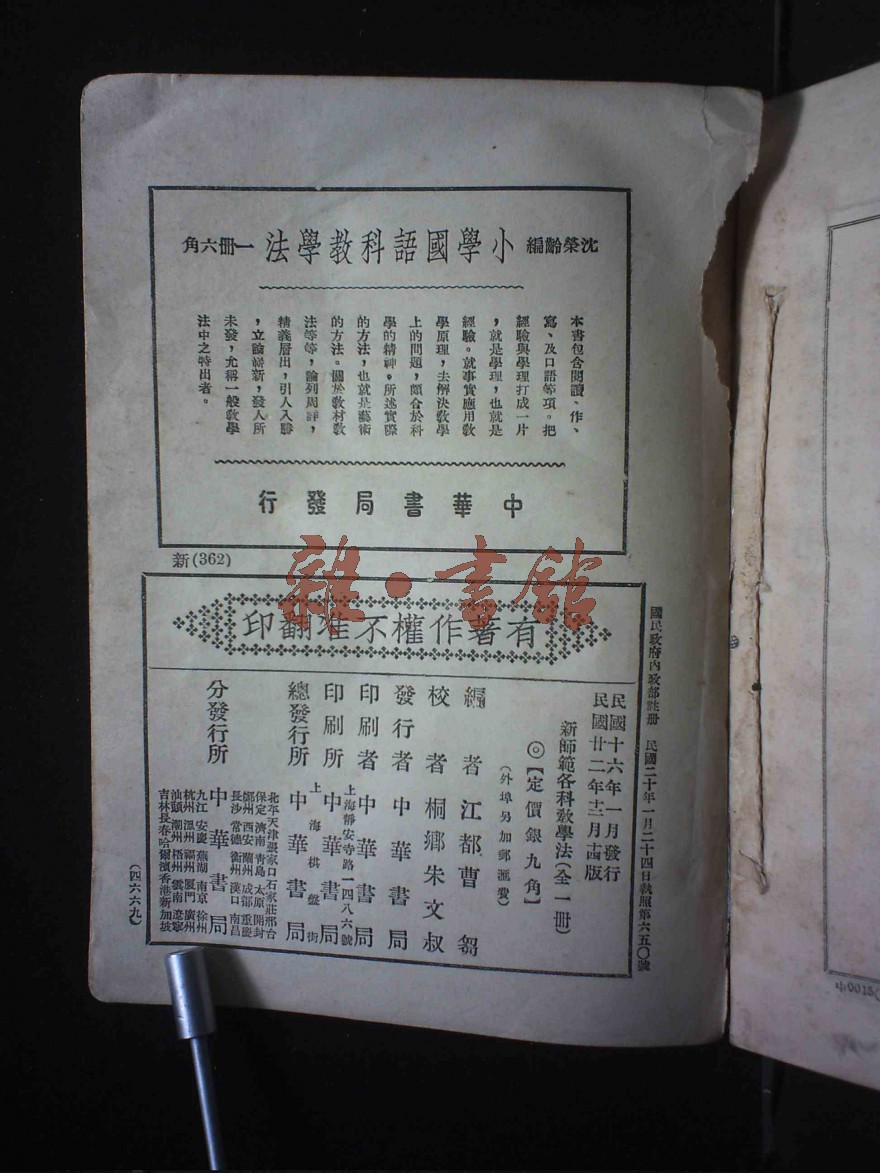 沈榮齡編 小學國語科教學法 一冊六角
本書包含閱讀、作、
寫、及口語等項。把
經驗與學理打成一片
，就是學理，也就是
經驗。就事實應用教
學原理，去解決教學
上的問題，頗合於科
學的精神。所述實際
的方法，也就是藝術
的方法。關於教材教
法等等，論列周詳，
精義層出，引人入勝
，立論嶄新，發人所
未發，尤稱一般教學
法中之特出者。
中華書局發行
新(362)
雜·書館
有著作權不准翻印
國民政府內政部註冊 民國二十年一月二十四日執照第六五〇號
民國十六年一月發行
民國廿二年十二月十四版
新師範各科教學法(全一冊)
◎【定價銀九角】
(外埠另加郵匯費)
編者 江都曹芻
校者 桐鄉朱文叔
發行者 中華書局
印刷者 中華書局
上海靜安寺路一四八六號
印刷所 中華書局
上海棋盤街
總發行所 中華書局
分發行所 中華書局
北平 天津 張家口 石家莊 邢台
保定 濟南 青島 太原 開封
鄭州 西安 蘭州 成都 重慶
長沙 常德 衡州 漢口 南昌
九江 安慶 蕪湖 南京 徐州
杭州 溫州 福州 廈門 廣州
汕頭 潮州 梧州 雲南 遼寧
吉林 長春 哈爾濱 香港 新加坡
(四六六九)
中0015